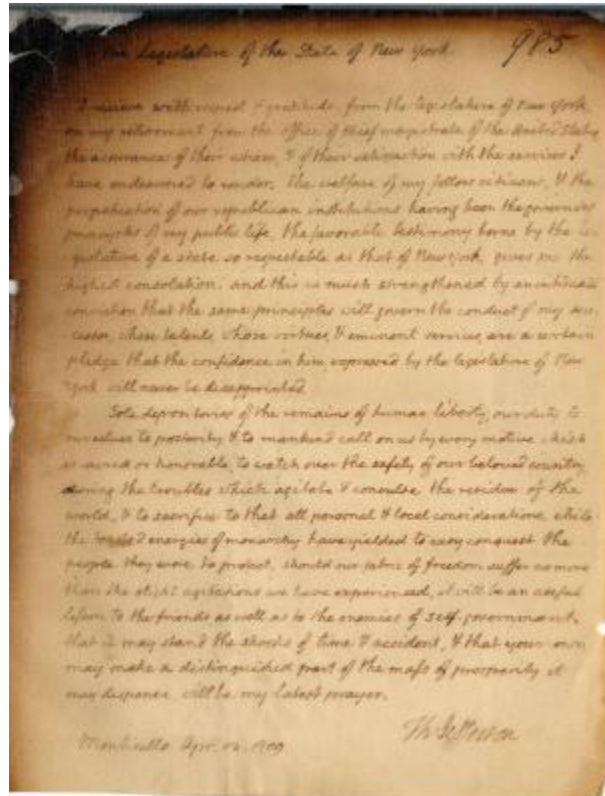 the Legislature of the State of New York.
985
I receive with respect & gratitude, from the legislature of New York
on my retirement from the office of chief magistrate of the United States
the assurance of their esteem, & of their satisfaction with the services I
have endeavored to render. The welfare of my fellow citizens, & the
perpetuation of our republican institutions having been the governing
principles of my public life, the favorable testimony borne by the le-
gislature of a state so respectable as that of New York, gives me the
highest consolation. and this is much strengthened by an intimate
conviction that the same principles will govern the conduct of my suc-
cessor, whose talents, whose virtues, & eminent services, are a certain
pledge that the confidence in him expressed by the legislature of New
York will never be disappointed.
Sole depositories of the remains of human liberty, our duty to
ourselves, to posterity, & to mankind call on us by every motive which
is sacred or honorable, to watch over the safety of our beloved country
during the troubles which agitate & convulse the residue of the
world, & to sacrifice to that all personal & local considerations. while
the boasted energies of monarchy have yielded to easy conquest the
people they were to protect, should our fabric of freedom suffer no more
than the slight agitations we have experienced, it will be an useful
lesson to the friends as well as to the enemies of self-government.
that it may stand the shocks of time & accident, & that your own
may make a distinguished part of the mass of prosperity it
may dispense, will be my latest prayer.
Th: Jefferson
Monticello Apr. 1809